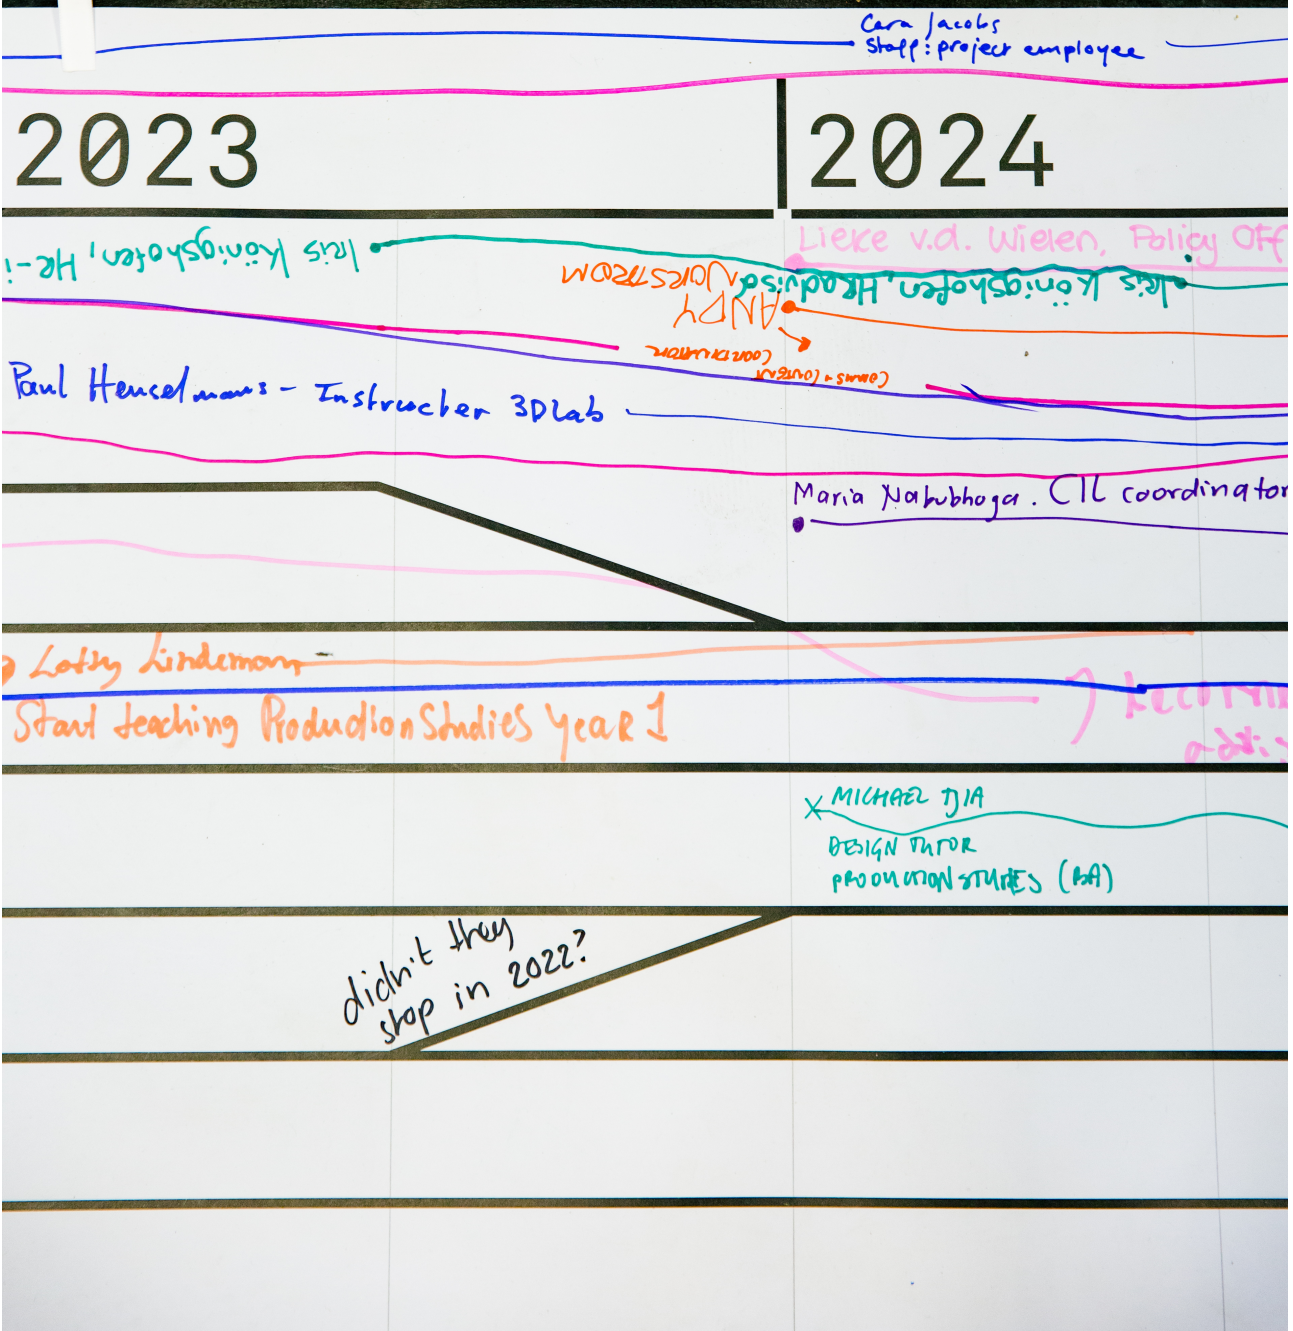 Cara Jacobs
Staff: project employee
2023
2024
Lieke v.d. Wielen, Policy Off
Iris Königshofen, HR-i
Iris Königshofen, HR advisor
ANDY
NORESTRÖM
COORDINATOR
COMMS + CONTENT
Paul Henselmans - Instructer 3D Lab
Maria Nabubhoga. CIL coordinator
Lotty Lindeman
Start teaching Production Studies year 1
MICHAEL TJIA
DESIGN TUTOR
PRODUCTION STUDIES (BA)
didn't they
stop in 2022?